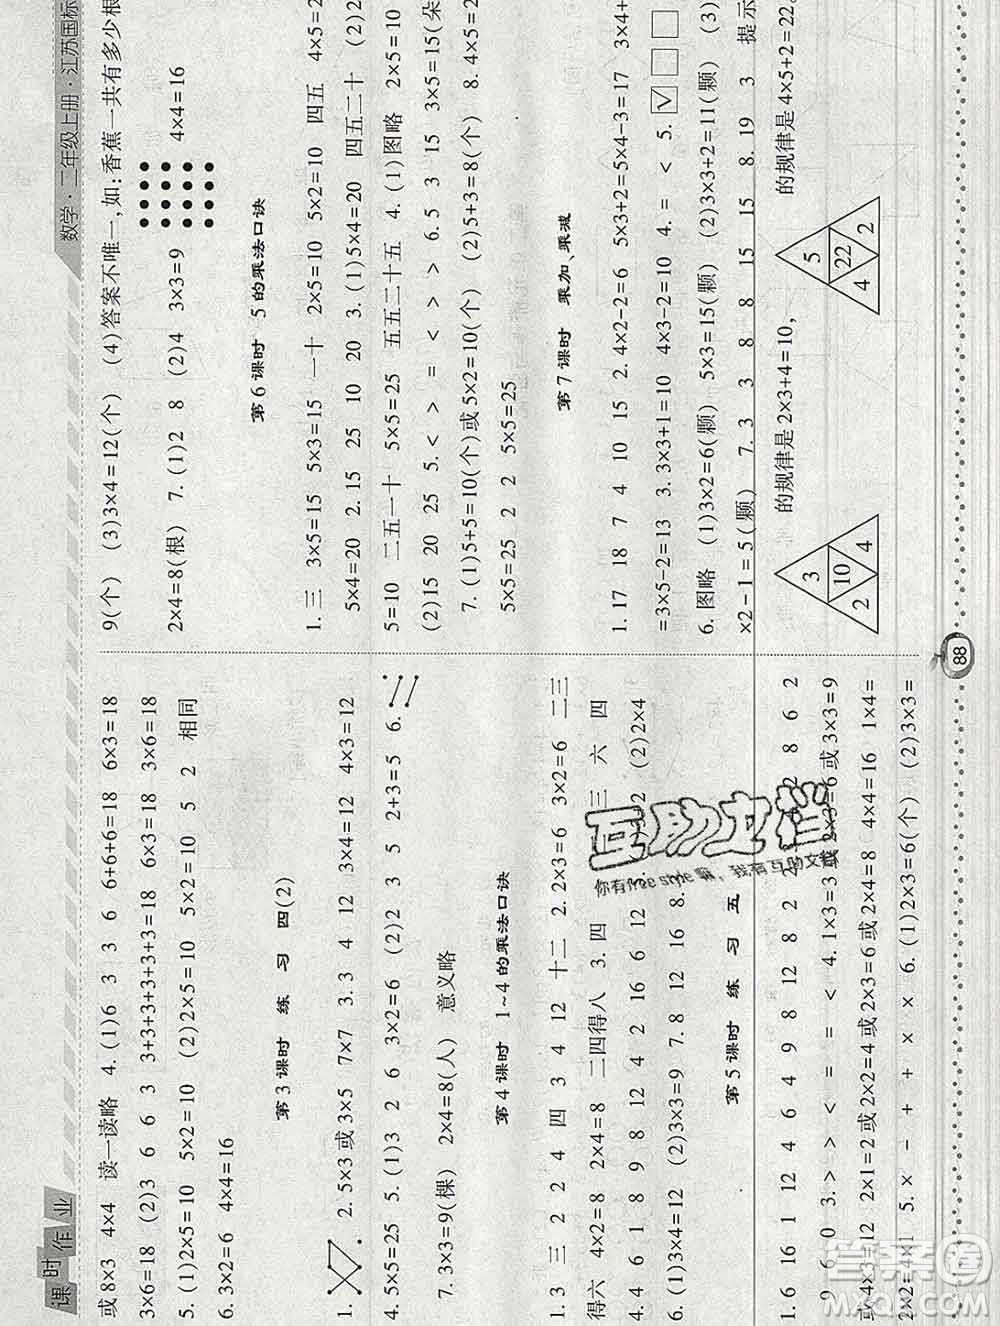 课时作业
数学·二年级上册·江苏国标
或8×3 4×4 读一读略 4.(1)6 3 3 6 6+6+6=18 6×3=18
3×6=18 (2)3 6 6 3 3+3+3+3+3+3=18 6×3=18 3×6=18
5.(1)2×5=10 5×2=10 (2)2×5=10 5×2=10 5 2 相同
6.3×2=6 4×4=16
第3课时 练 习 四(2)
1. 2.5×3或3×5 7×7 3.3 4 12 3×4=12 4×3=12
4.5×5=25 5.(1)3 2 6 3×2=6 (2)2 3 5 2+3=5 6.
7.3×3=9(棵) 2×4=8(人) 意义略
第4课时 1~4的乘法口诀
1.3 三 2 2 4 四 3 4 12 十二 2.2×3=6 3×2=6 二三
得六 4×2=8 2×4=8 二四得八 3.四 三 六 四
4.4 6 1 8 9 8 12 4 2 16 6 12 2 (2)2×4
6.(1)3×4=12 (2)3×3=9 7.8 12 16 8.
第5课时 练 习 五
1.6 16 1 12 4 6 4 9 8 12 8 2 2 8 6 2
9 6 0 3.> > < = = < 4.1×3=3 2×3=6或3×3=9
或4×3=12 2×1=2或2×2=4或2×3=6或2×4=8 4×4=16 1×4=
2×2=4×1 5.× - + + × × 6.(1)2×3=6(个) (2)3×3=
9(个) (3)3×4=12(个) (4)答案不唯一,如:香蕉一共有多少根
2×4=8(根) 7.(1)2 8 (2)4 3×3=9 4×4=16
第6课时 5的乘法口诀
1.三 3×5=15 5×3=15 一十 2×5=10 5×2=10 四五 4×5=2
5×4=20 2.15 25 10 20 3.(1)5×4=20 四五二十 (2)2
5=10 二五一十 5×5=25 五五二十五 4.(1)图略 2×5=10
(2)15 20 25 5.< > = < > > 6.5 3 15 3×5=15(朵
7.(1)5+5=10(个)或5×2=10(个) (2)5+3=8(个) 8.4×5=2
5×5=25 2 2 5×5=25
第7课时 乘加、乘减
1.17 18 7 4 10 15 2.4×2-2=6 5×3+2=5×4-3=17 3×4+
=3×5-2=13 3.3×3+1=10 4×3-2=10 4.= < 5.☑ □ □
6.图略 (1)3×2=6(颗) 5×3=15(颗) (2)3×3+2=11(颗) (3)
×2-1=5(颗) 7.3 3 8 8 15 15 8.19 3 提示
3 10 2 4 的规律是2×3+4=10,
5 22 4 2 的规律是4×5+2=22。
88
互助文档
你有free style嘛,我有互助文档
答案圈
MXQE.COM